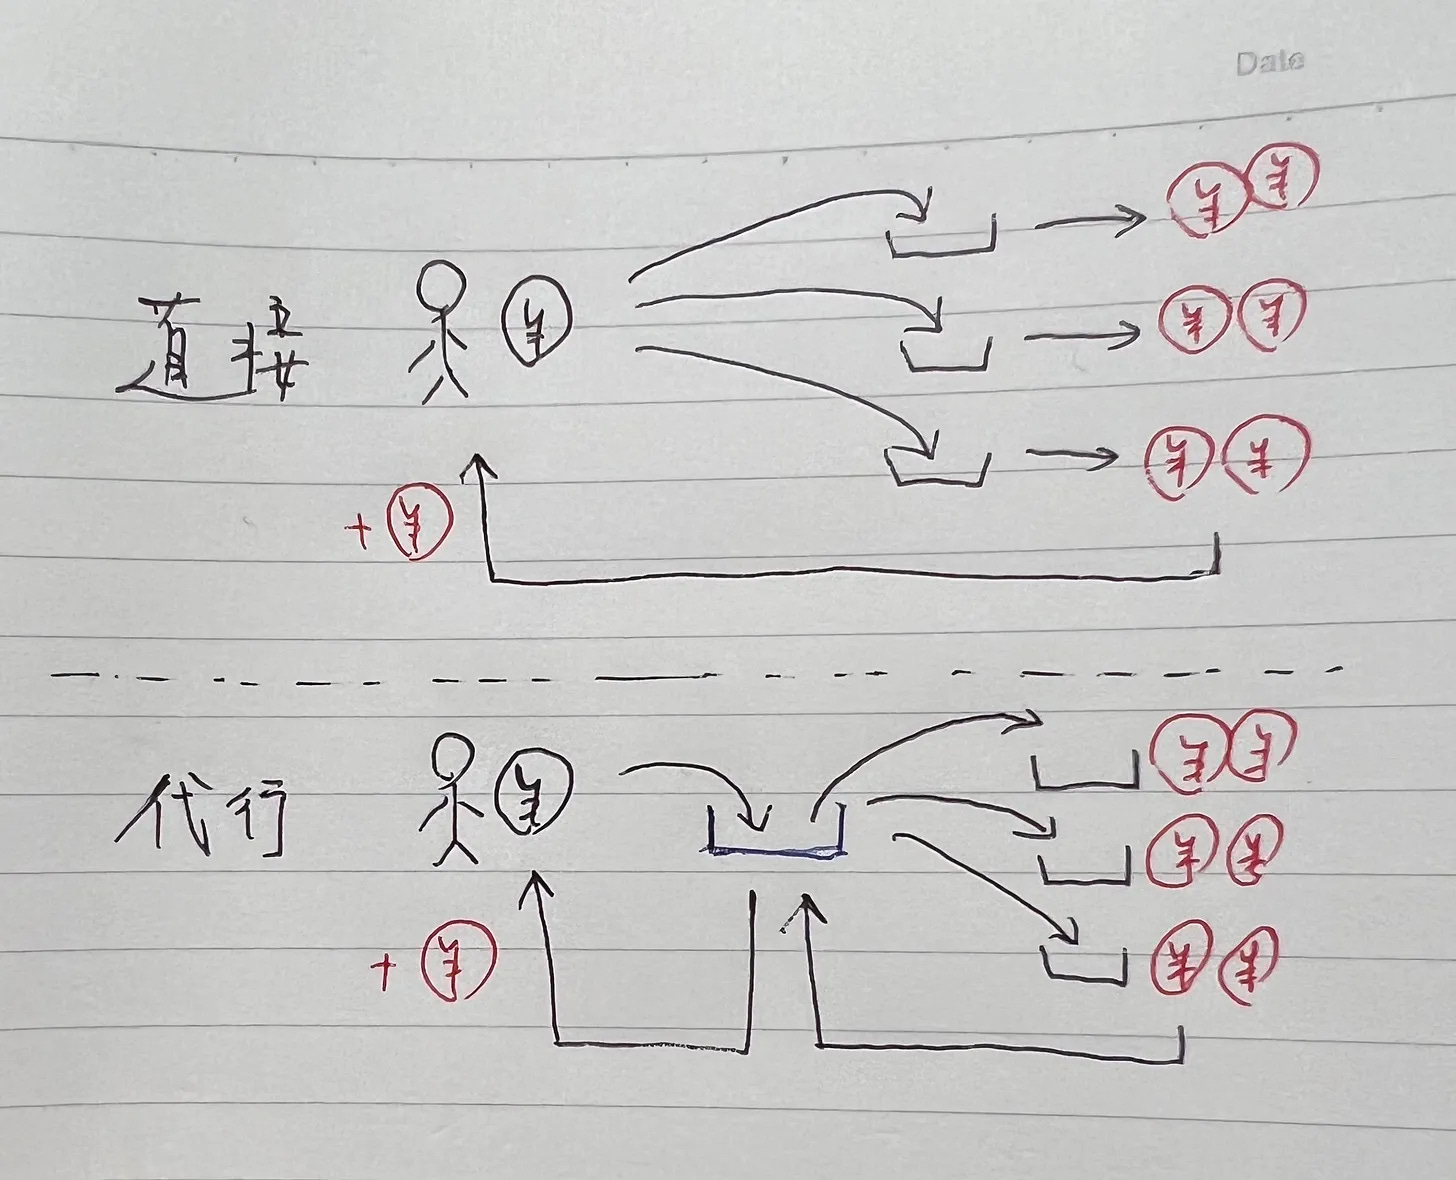 Date
¥ ¥
直接 ¥ ¥ ¥
¥ ¥
+ ¥
¥ ¥
代行 ¥ ¥ ¥
+ ¥ ¥ ¥